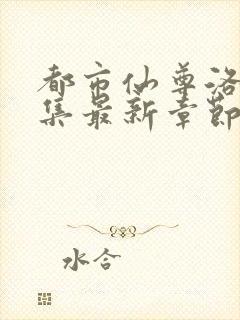 都市仙尊洛
集最新章节
水合